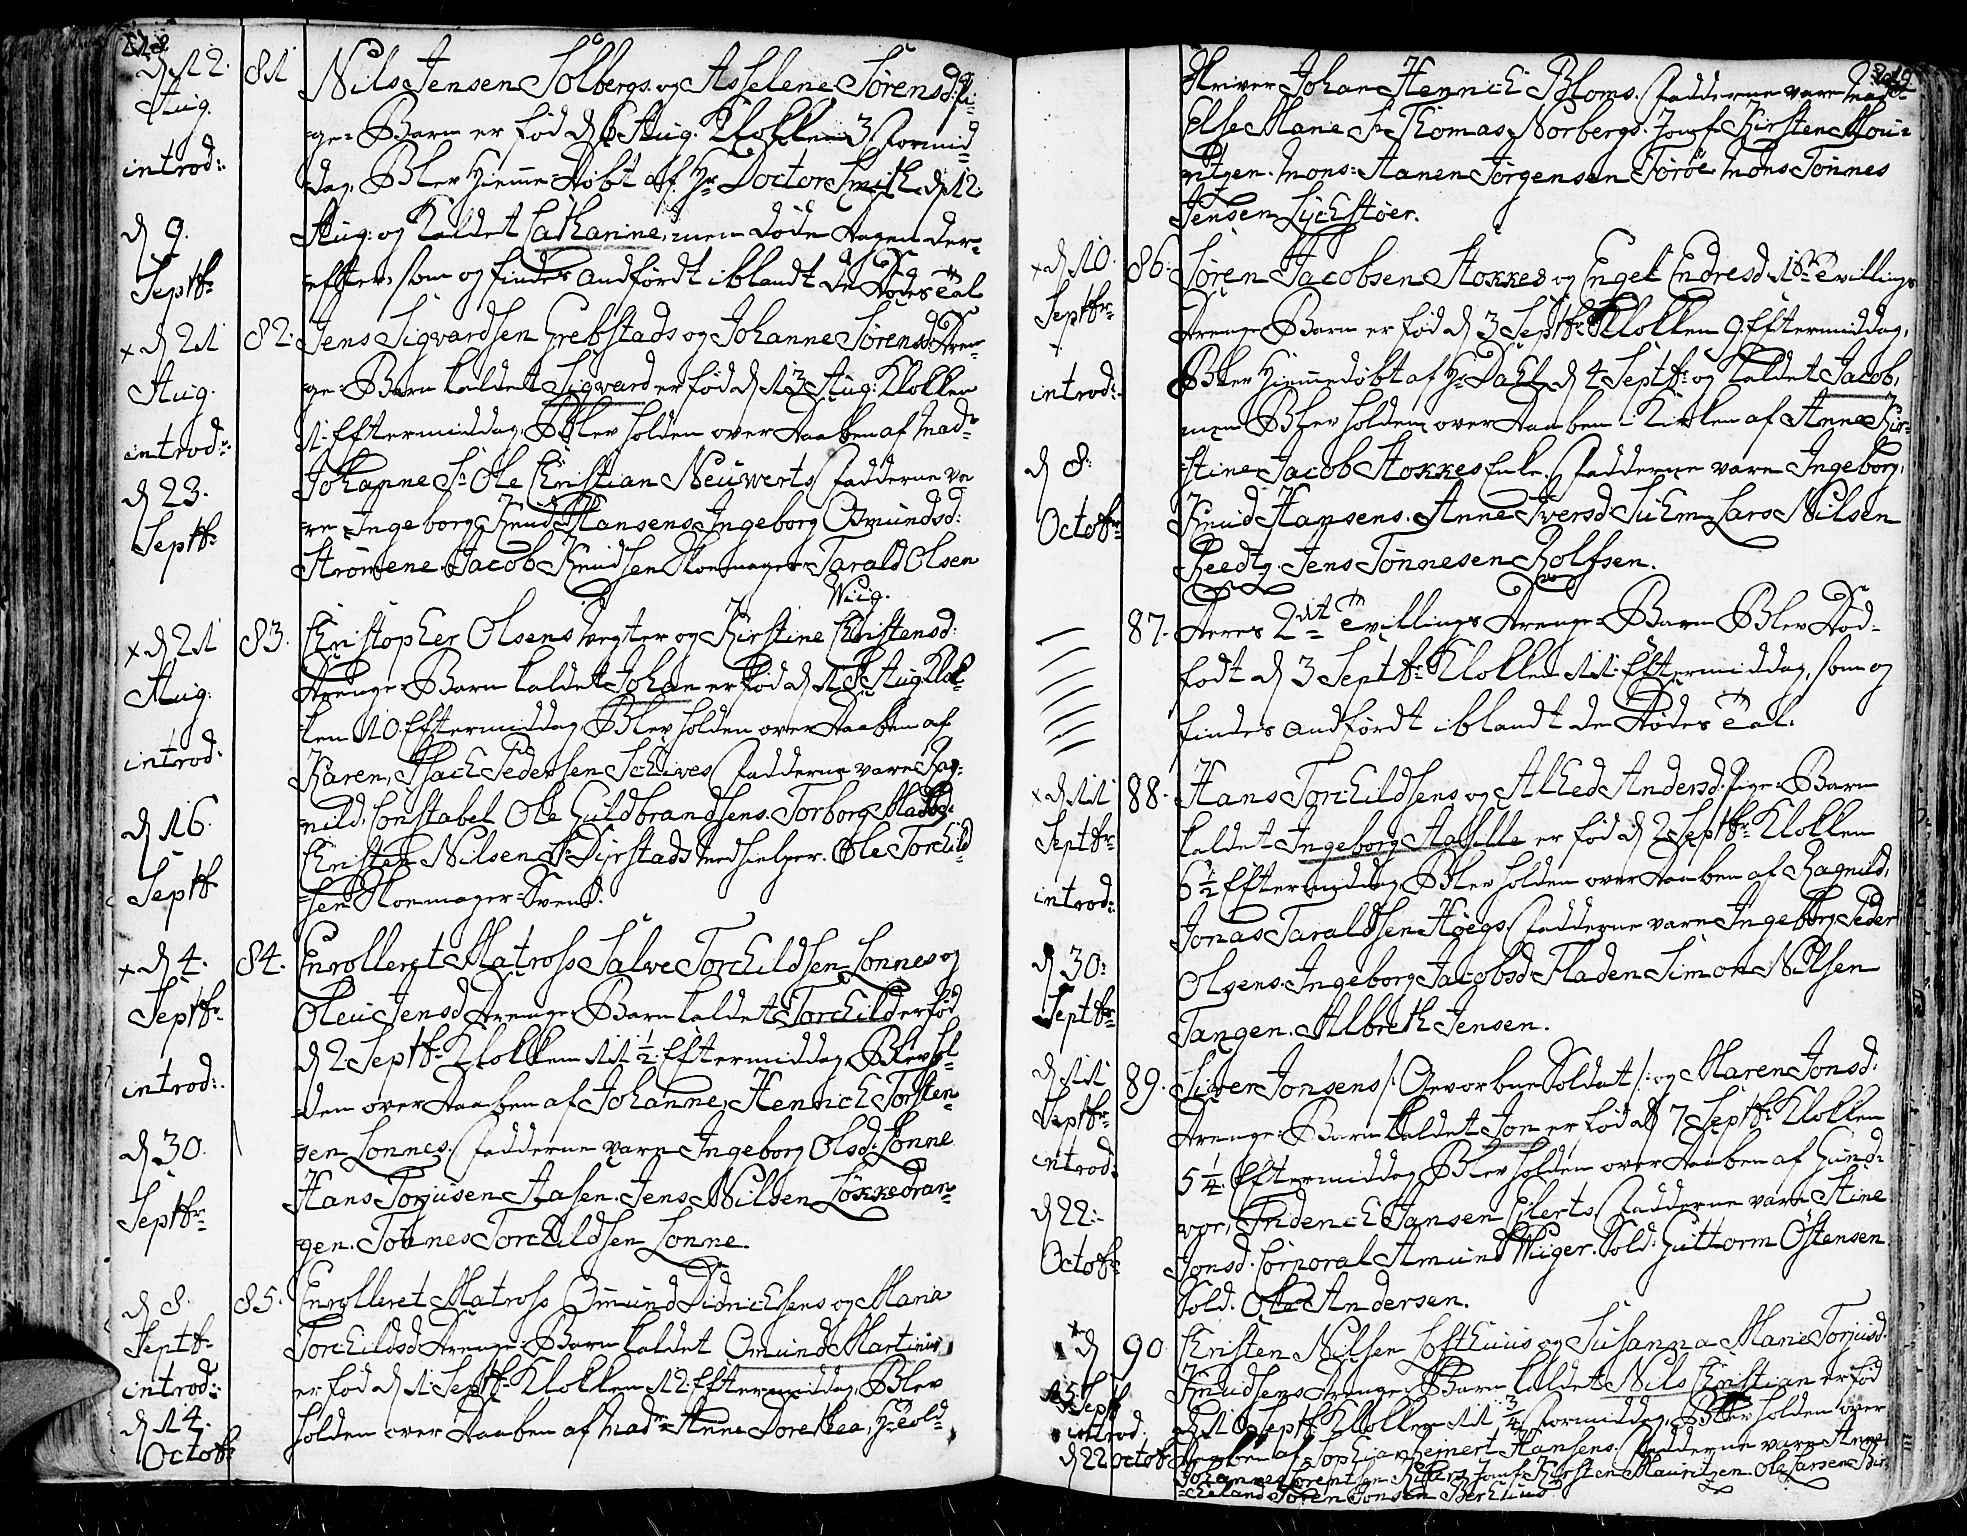 218.
d 12. Aug. introd: d 9. Septbr
81 Nils Jensen Solbergs og Asselene Sørensd: Pi-
ge-Barn er fød d 6 Aug. Klokken 3 Formid-
dag, Blev Hiemme-Døbt af Hr Doctor Smith d 12
Aug: og Kaldet Cathanine, men døde dagen der-
efter, som og findes andførdt iblandt de Dødes Tal
x d 21 Aug. introd: d 23. Septbr
82. Jens Sigvardsen Grebstads og Johanne Sørensd: Dren-
ge-Barn kaldet Sigvard er fød d 13 Aug: Klokken
11 Eftermiddag, Blev holden over Daaben af Mad:
Johanne Sl Ole Christian Neuwerts Fadderne va-
re Ingeborg Knud Hansens, Ingeborg Osmundsd:
Strømene. Jacob Knudsen Skoemager Tarald Olsen
Wiig.
x d 21 Aug: introd: d 16. Septbr
83. Christopher Olsens Vegter og Kirstine Christensd:
Drenge-Barn kaldet Johan er fød d 18 Aug Klok-
ken 10 Eftermiddag Blev holden over Daaben af
Karen, Isach Pedersen Schives Fadderne vare Rag-
nild, Constabel Ole Guldbrandsens. Torborg
Christen Nilsen Dyrstads Medhielper. Ole Torchild-
sen Skoemager-Svend.
x d 4. Septbr. introd: d 30. Septbr
84. Enrolleret Matross Salve Torchildsen Lonnes og
Oleu Jensd Drenge Barn kaldet Torchild er fød
d 2 Septbr Klokken 11 1/2 Eftermiddag Blev hol-
den over Daaben af Johanne, Henrich Torsten-
sen Lonnes. Fadderne vare Ingeborg Olsd: Lonne
Hans Torjusen Aasen. Jens Nilsen Løkkedran-
gen. Tønnes Torchildsen Lonne.
d 8. Septbr introd: d 14. Octobr
85. Enrolleret Matross Omund Didrichsens og Maria
Torchildsd Drenge-Barn kaldet Omund Martinus
er fød d 1 Septbr Klokken 12 Eftermiddag, Blev
holden over Daaben af Mad: Anne Dorethea, Hr Told-
219
skriver Johan Henrich Bloms. Fadderne vare Mad:
Else Marie Sl Thomas Norbergs. Jomf: Kirsten Mou-
ritzen. Mons: Aanen Jørgensen Torøe Mons Tønnes
Jensen Lyckstøer.
x d 10. Septbr introd: d 8. Octobr
86. Søren Jacobsen Stokkes og Engel Endresd 1ste Tvillings
Drenge Barn er fød d 3 Septbr Klokken 9 Eftermiddag,
Blev Hiemmedøbt af Hr Dahl d 4 Septbr og kaldet Jacob,
men Blev holden over Daaben i Kirken af Anne Kir-
stine Jacob Stokkes Enke. Fadderne vare Ingeborg,
Knud Hansens. Anne Iversd Suhm Lars Nilsen
Reedtz. Jens Tønnesen Rolfsen.
87. Deres 2det Tvillings Drenge-Barn Blev Død-
født d 3 Septbr Klokken 11 Eftermiddag, som og
findes andførdt iblandt de Dødes Tal:
x d 11 Septbr introd: d 30: Septbr
88. Hans Torchildsens og Alhed Andersd. Pige-Barn
kaldet Ingeborg er fød d 2 Septbr Klokken
6 1/2 Eftermiddag, Blev holden over Daaben af Ragnild,
Jonas Taraldsen Høegs. Fadderne vare Ingeborg Peder
Olsens. Ingeborg Jacobsd Fladen Simon Nilsen
Tangen. Albreth Jensen.
d 11 Septbr introd: d 22: Octobr
89. Siver Jonsens /: Gevorbne Soldat :/ og Maren Jonsd:
Drenge-Barn kaldet Jon er fød d 7 Septbr Klokken
5 1/4 Eftermiddag Blev holden over Daaben af Gund-
vor, Friderich Jansen Eilerts. Fadderne vare Stine
Jonsd. Corporal Amund Wiiger. Sold: Guttorm Østensen
Sold. Ole Andersen.
x d 15 Septbr introd. d 22 Octobr
90 Christen Nilsen Lofthuus og Susanna Marie Torjusd.
Knudsens Drenge-Barn kaldet Nils Christian er fød
d 10 Septbr Klokken 11 3/4 Formiddag, Blev holden over
Daaben af Sophia Reinert Hansens. Fadderne vare Anne
Johannes Jomf: Kirsten Mauritzen. Ole Larsen Bir-
cheland. Søren Jonsen Berthius